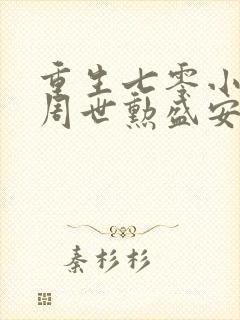 重生七零小
周世勳盛安
秦杉杉